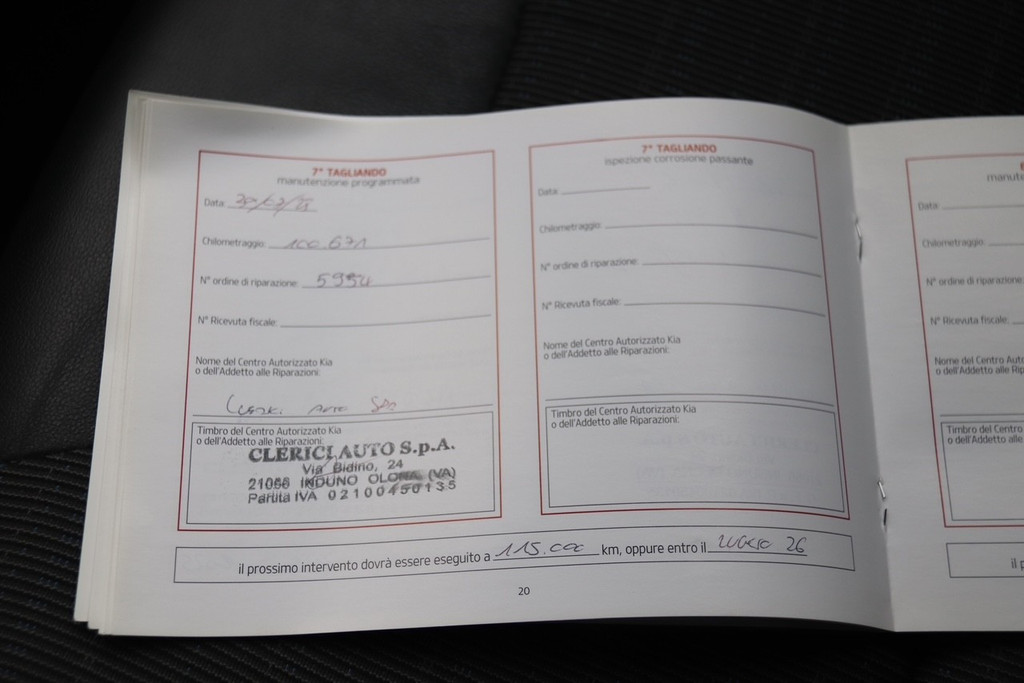 7° TAGLIANDO
manutenzione programmata
Data:
Chilometraggio: 100.671
N° ordine di riparazione: 5994
N° Ricevuta fiscale:
Nome del Centro Autorizzato Kia
o dell'Addetto alle Riparazioni:
Clerici Auto SpA
Timbro del Centro Autorizzato Kia
o dell'Addetto alle Riparazioni:
CLERICI AUTO S.p.A.
Via Bidino, 24
21056 INDUNO OLONA (VA)
Partita IVA 02100450135
7° TAGLIANDO
ispezione corrosione passante
Data:
Chilometraggio:
N° ordine di riparazione:
N° Ricevuta fiscale:
Nome del Centro Autorizzato Kia
o dell'Addetto alle Riparazioni:
Timbro del Centro Autorizzato Kia
o dell'Addetto alle Riparazioni:
il prossimo intervento dovrà essere eseguito a 115.000 km, oppure entro il LUGLIO 26
20
manute
Data:
Chilometraggio:
N° ordine di riparazione:
N° Ricevuta fiscale:
Nome del Centro Auto
o dell'Addetto alle Rip
Timbro del Centro
o dell'Addetto alle
il p